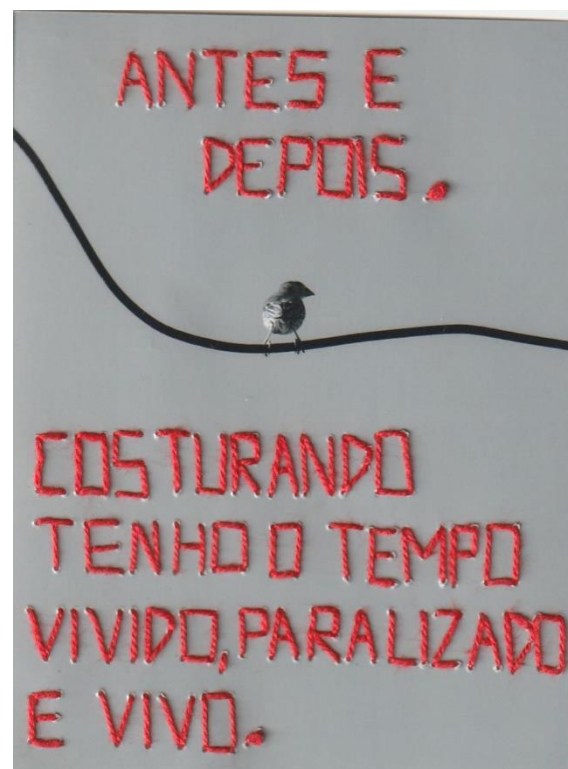 ANTES E
DEPOIS.
COSTURANDO
TENHO O TEMPO
VIVIDO, PARALIZADO
E VIVO.